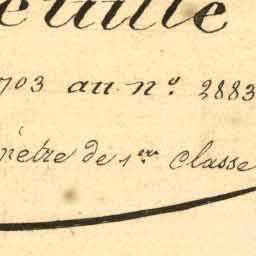 euille
703 au nº. 2883
mètre de 1er classe